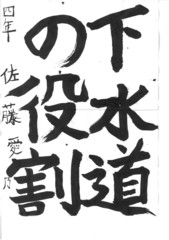 下水道
の役割
四年 佐藤愛乃